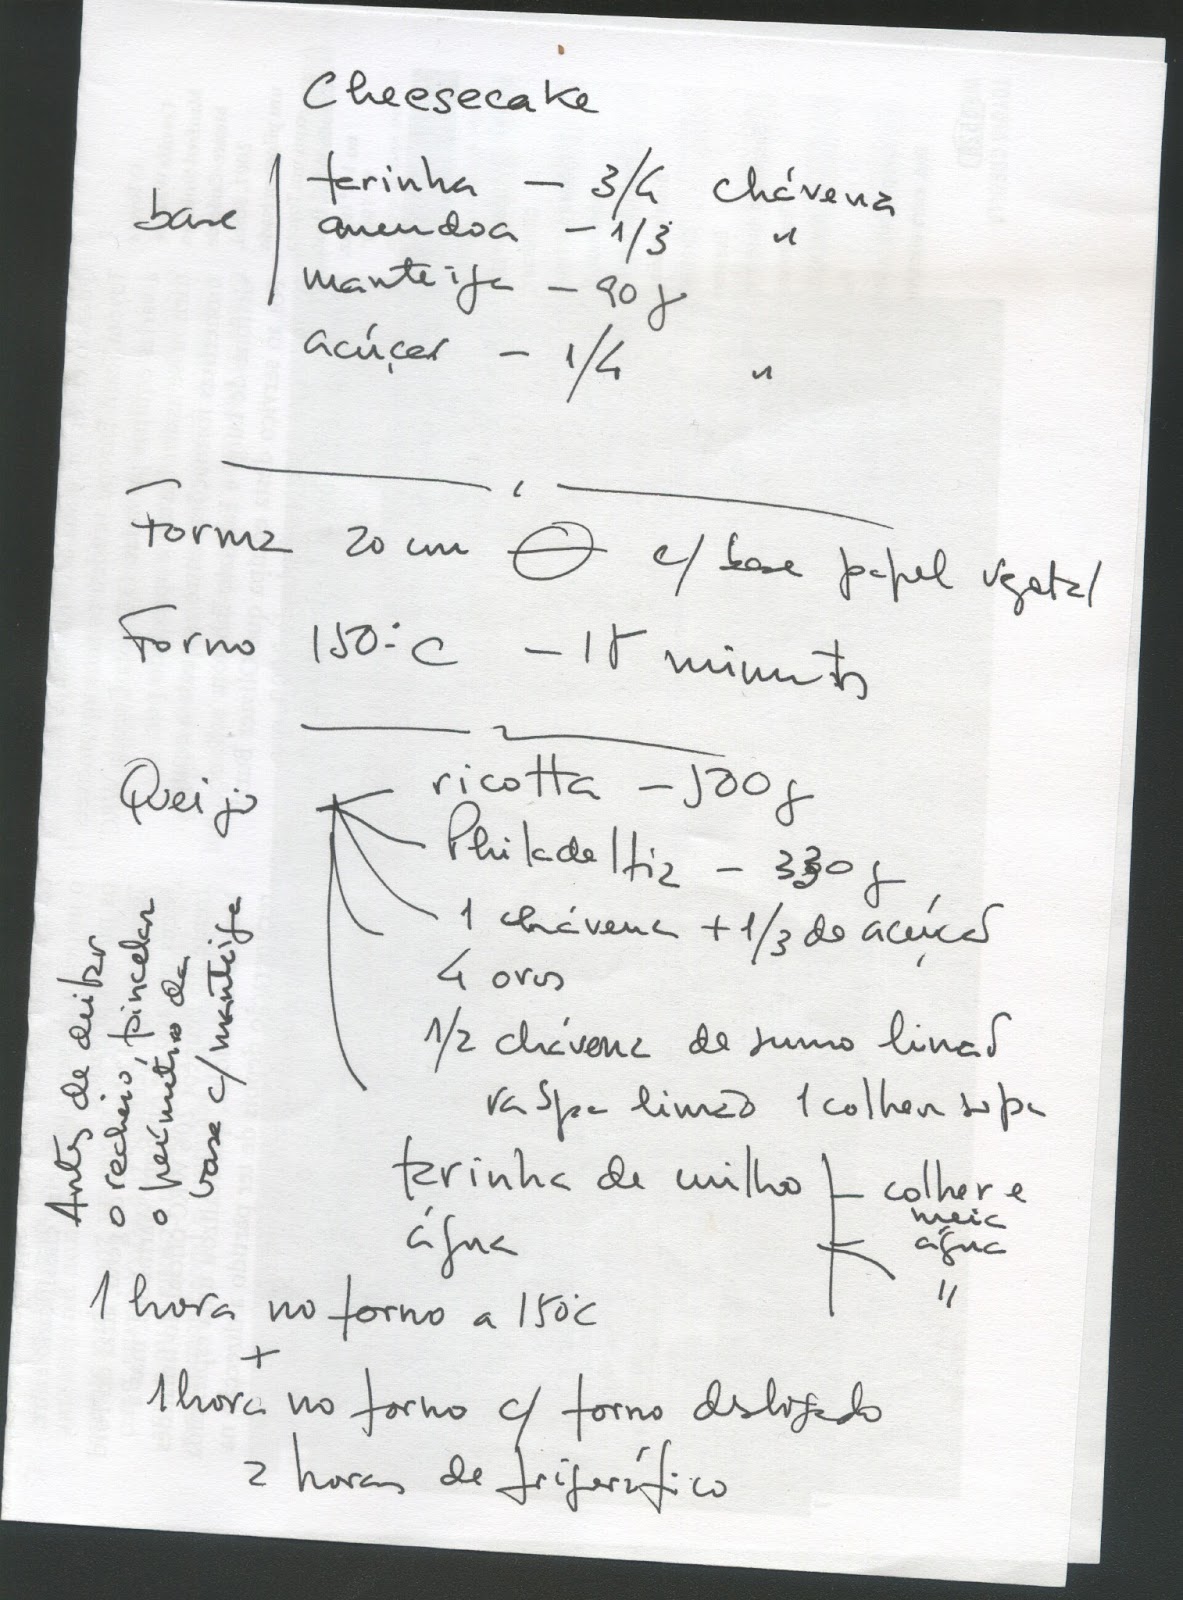 Cheesecake
base
farinha - 3/4 chávena
amendoa - 1/3 "
manteiga - 90 g
acúçar - 1/4 "
1
Forma 20 cm c/ base papel vegetal
Forno 150°C - 15 minutos
2
Queijo
ricotta - 500 g
Philadelfia - 330 g
1 chávena + 1/3 de acúçar
4 ovos
1/2 chávena de sumo limão
raspa limão 1 colher sopa
farinha de milho
água
colher e
meia
água
"
Antes de deitar
o recheio, pincelar
o perímetro da
base c/ manteiga
1 hora no forno a 150°C
+
1 hora no forno c/ forno desligado
2 horas de frigorífico